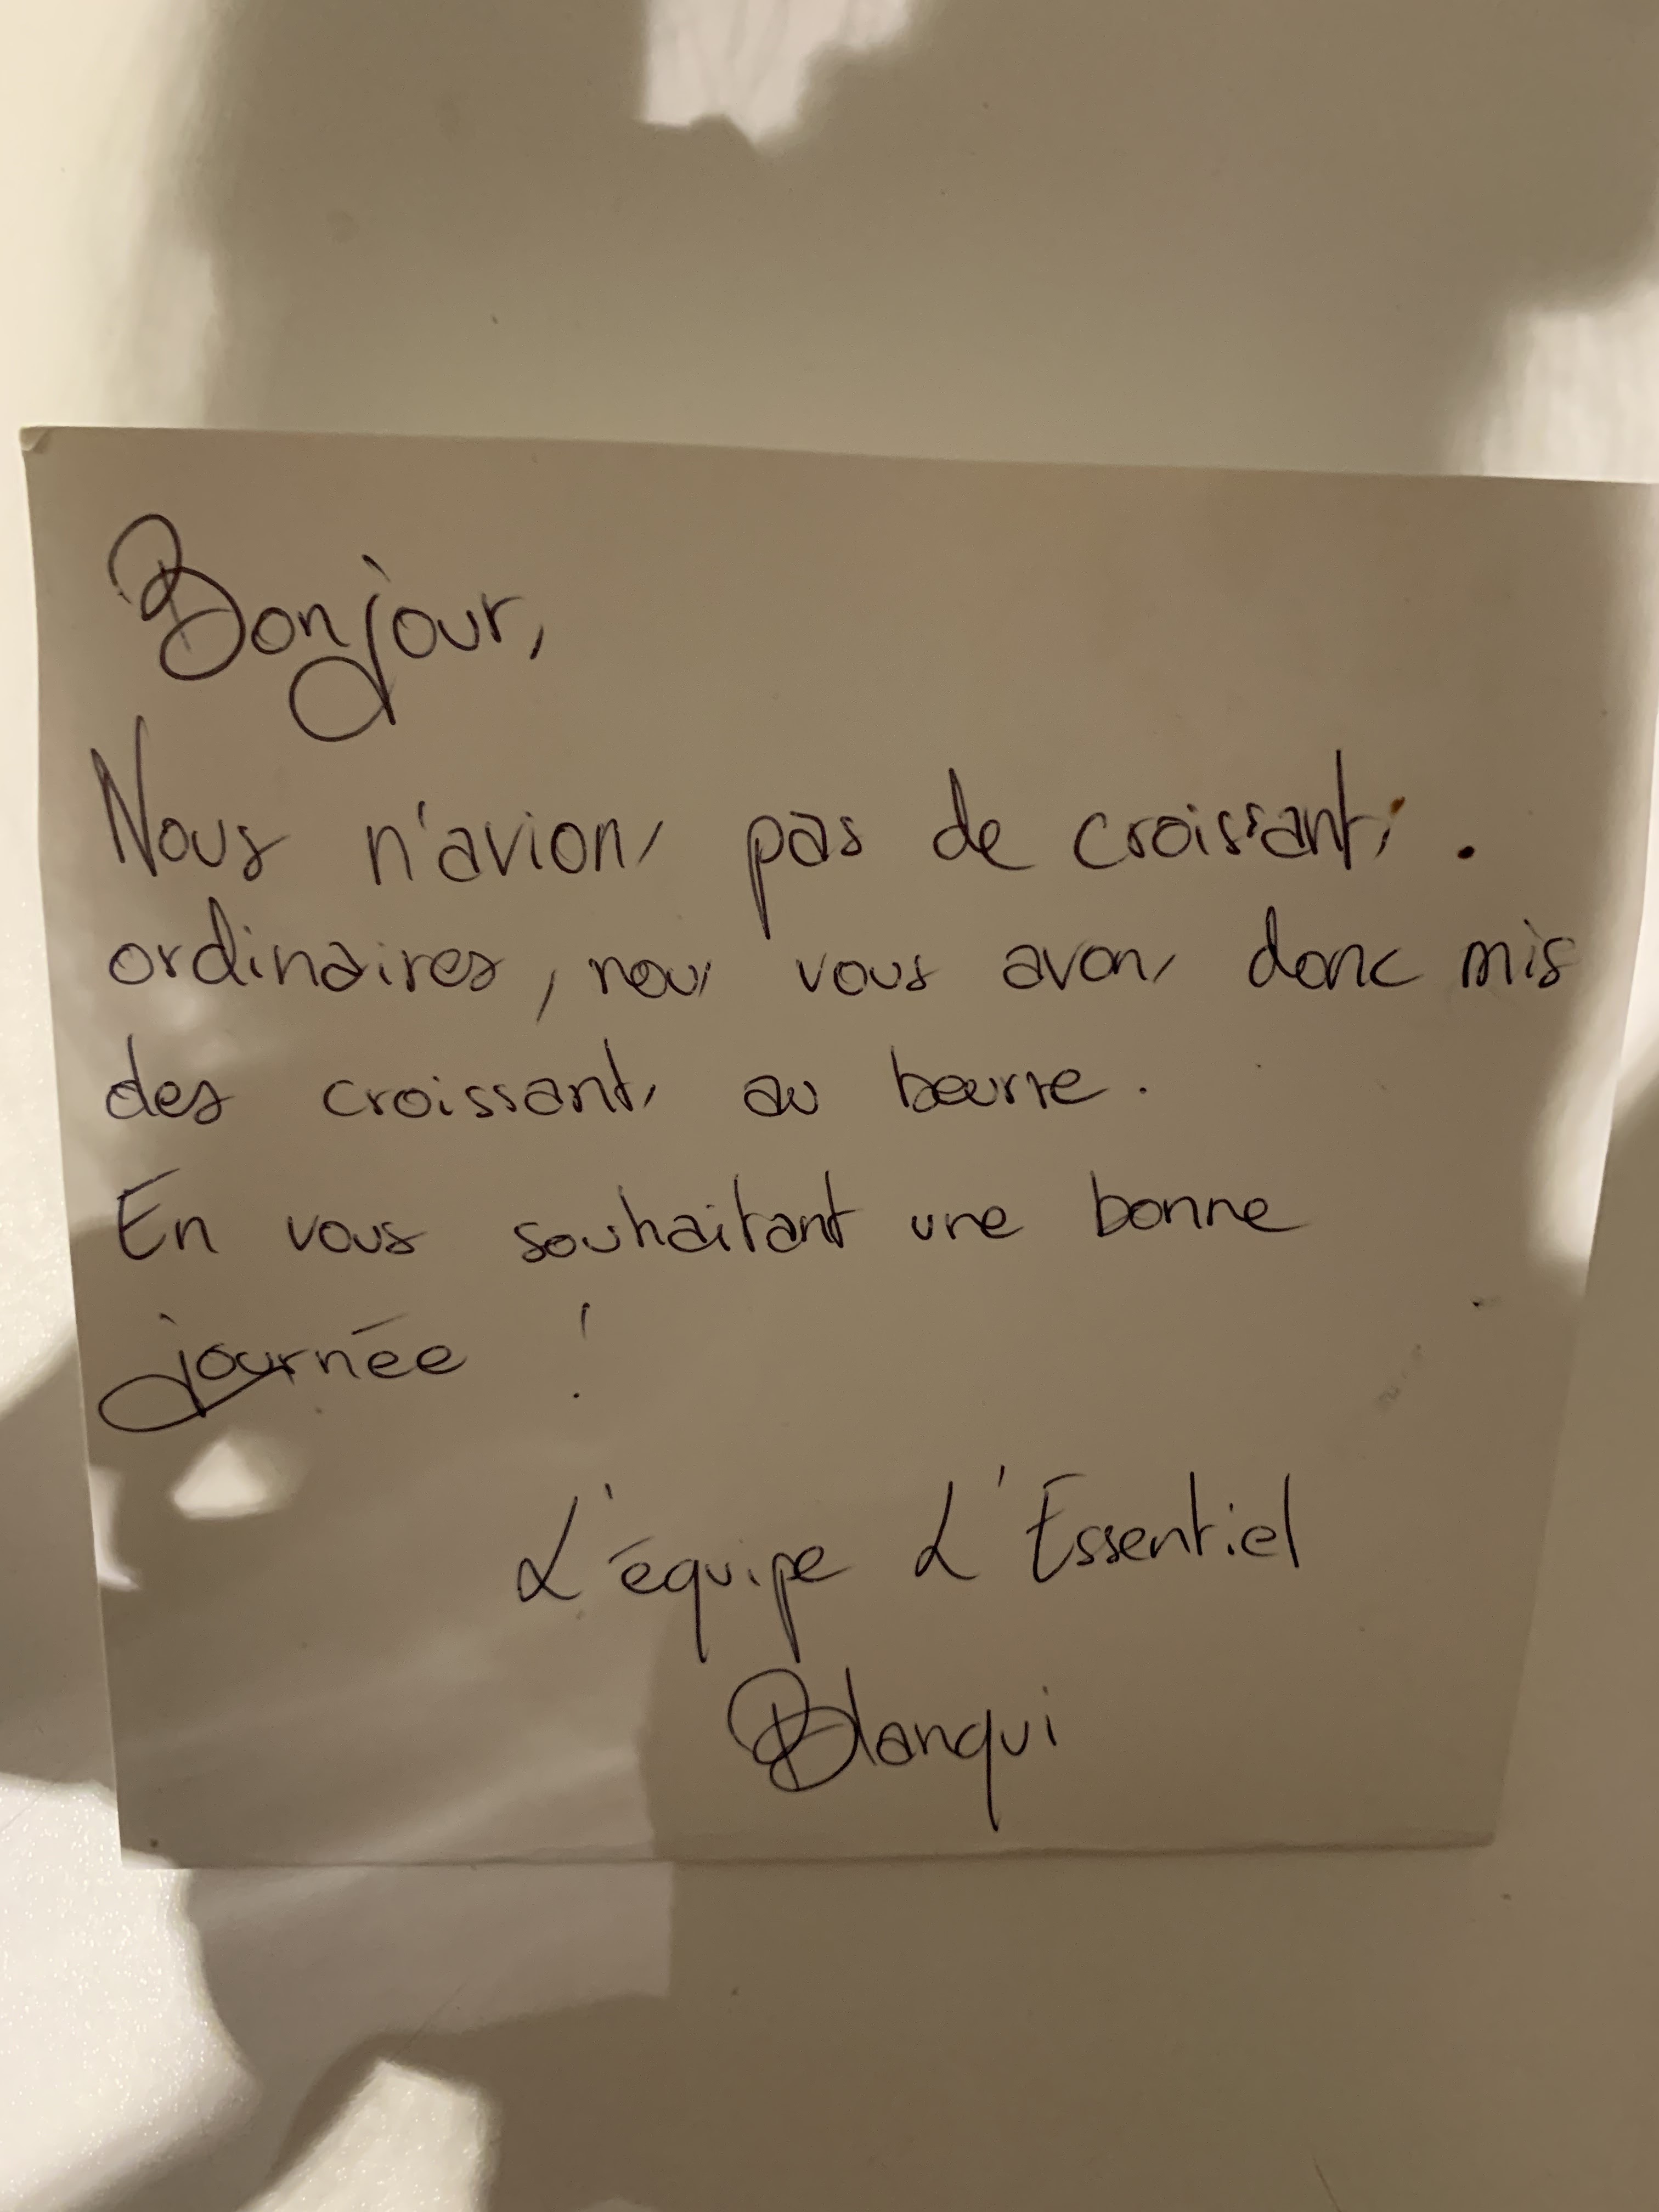 Bonjour,
Nous n'avions pas de croissants.
ordinaires, nous vous avons donc mis
des croissants au beurre.
En vous souhaitant une bonne
journée !
L'équipe L'Essentiel
Blanqui